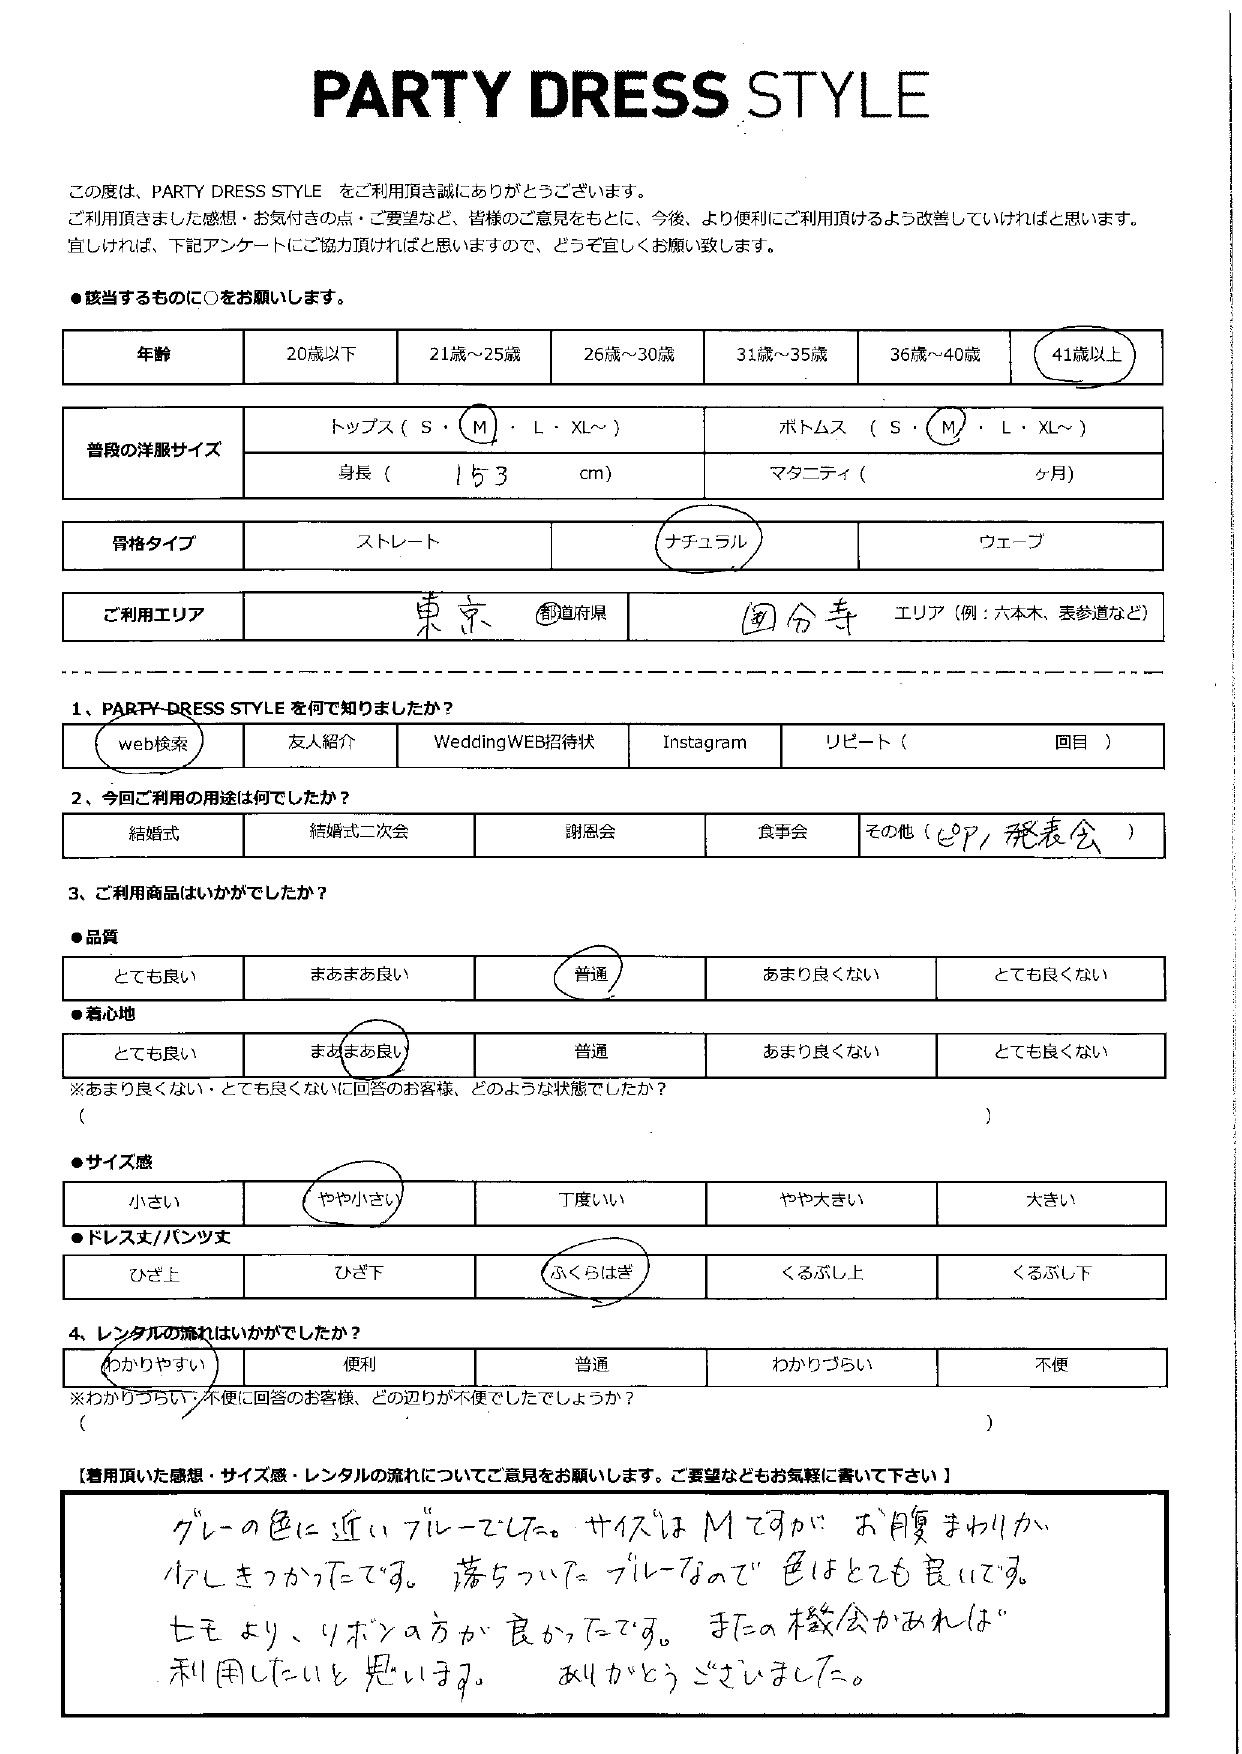 PARTY DRESS STYLE
この度は、PARTY DRESS STYLE をご利用頂き誠にありがとうございます。
ご利用頂きました感想・お気付きの点・ご要望など、皆様のご意見をもとに、今後、より便利にご利用頂けるよう改善していければと思います。
宜しければ、下記アンケートにご協力頂ければと思いますので、どうぞ宜しくお願い致します。
●該当するものに○をお願いします。
年齢 20歳以下 21歳～25歳 26歳～30歳 31歳～35歳 36歳～40歳 41歳以上
普段の洋服サイズ
トップス ( S ・ M ・ L ・ XL～ ) ボトムス ( S ・ M ・ L ・ XL～ )
身長 ( 153 cm) マタニティ ( ヶ月)
骨格タイプ ストレート ナチュラル ウェーブ
ご利用エリア 東京 都道府県 国分寺 エリア（例：六本木、表参道など）
1、PARTY DRESS STYLE を何で知りましたか？
web検索 友人紹介 WeddingWEB招待状 Instagram リピート ( 回目 )
2、今回ご利用の用途は何でしたか？
結婚式 結婚式二次会 謝恩会 食事会 その他 ( ピアノ発表会 )
3、ご利用商品はいかがでしたか？
●品質
とても良い まあまあ良い 普通 あまり良くない とても良くない
●着心地
とても良い まあまあ良い 普通 あまり良くない とても良くない
※あまり良くない・とても良くないに回答のお客様、どのような状態でしたか？
( )
●サイズ感
小さい やや小さい 丁度いい やや大きい 大きい
●ドレス丈/パンツ丈
ひざ上 ひざ下 ふくらはぎ くるぶし上 くるぶし下
4、レンタルの流れはいかがでしたか？
わかりやすい 便利 普通 わかりづらい 不便
※わかりづらい・不便に回答のお客様、どの辺りが不便でしたでしょうか？
( )
【着用頂いた感想・サイズ感・レンタルの流れについてご意見をお願いします。ご要望などもお気軽に書いて下さい 】
グレーの色に近いブルーでした。サイズはMですが お腹まわりが
少しきつかったです。落ちついたブルーなので 色はとても良いです。
七モより、リボンの方が良かったです。またの機会があれば
利用したいと思います。 ありがとうございました。